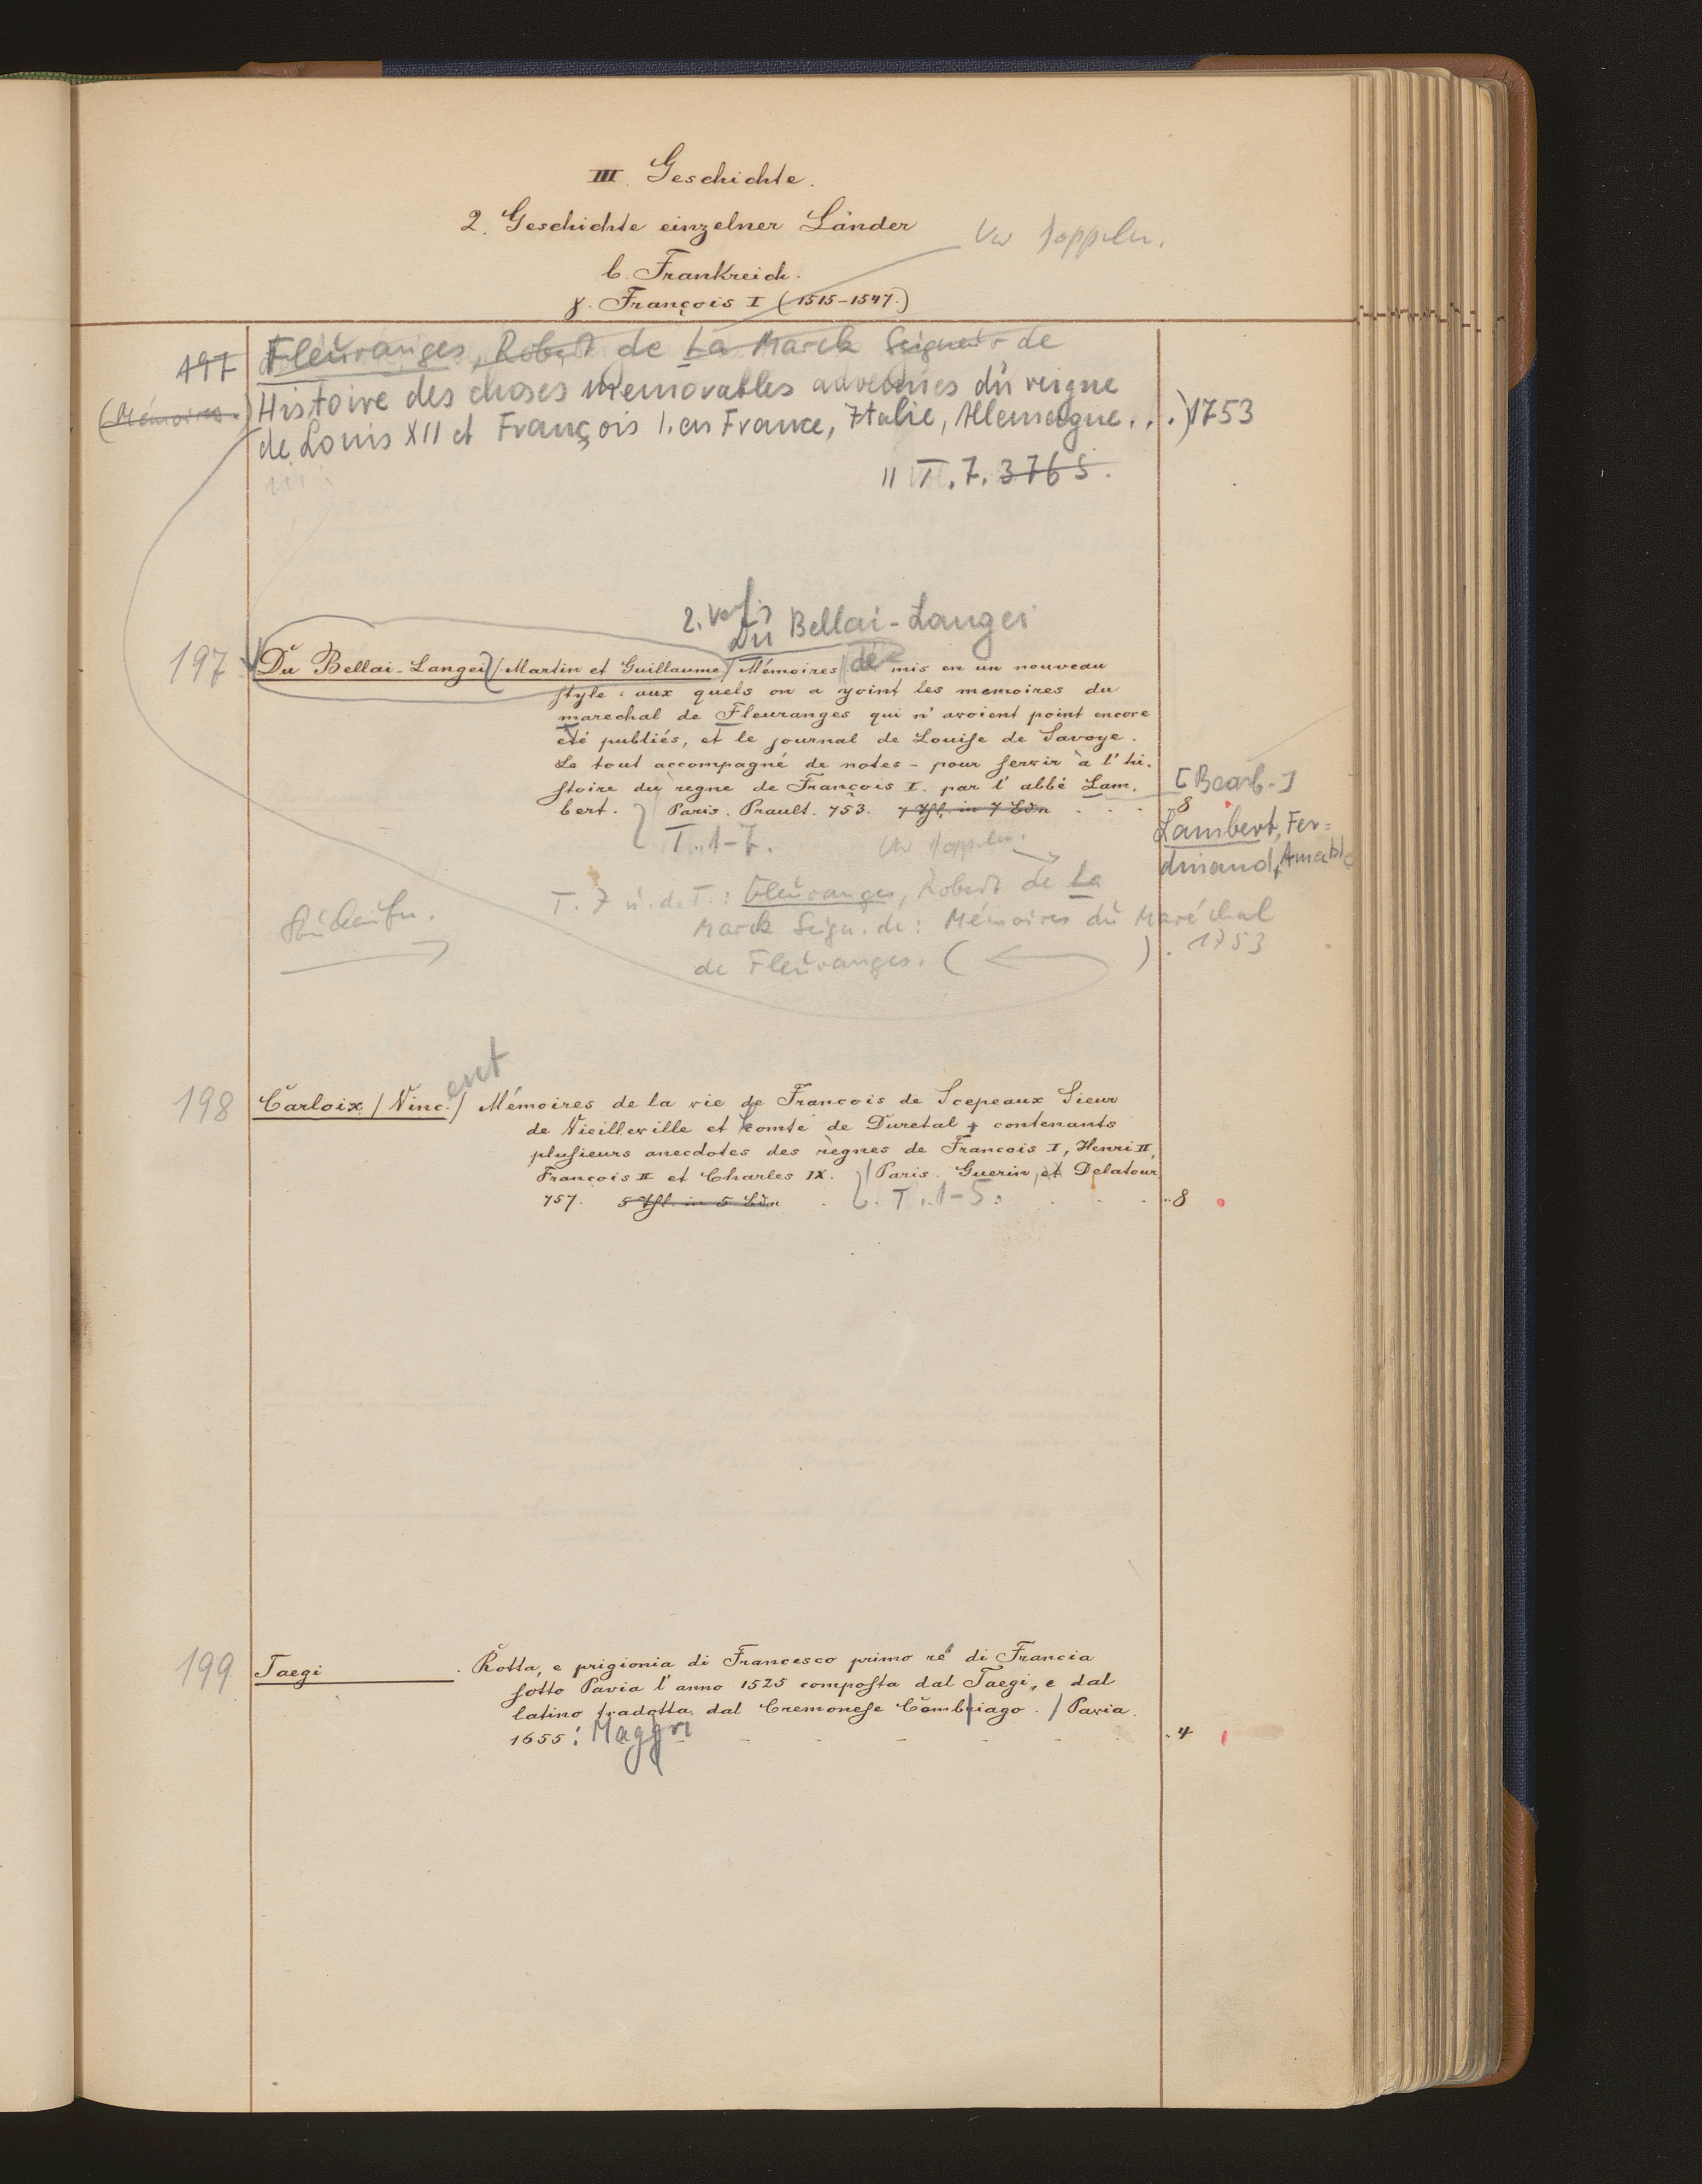 III. Geschichte.
2. Geschichte einzelner Länder
Vw doppeln.
b. Frankreich.
γ. François I (1515-1547.)
197 Fleuranges, Robert de La Marck Seigneur de
(Mémoires.) Histoire des choses memorables advenues du reigne
de Louis XII et François I. en France, Italie, Allemagne. . .) 1753
T. 7. 3765.
2. Verf.
Du Bellai-Langei
197 Du Bellai-Langei / Martin et Guillaume / Mémoires de mis en un nouveau
style: aux quels on a yoint les memoires du
marechal de Fleuranges qui n'avoient point encore
été publiés, et le journal de Louise de Savoye.
Le tout accompagné de notes - pour servir à l'hi-
stoire du règne de François I. par l'abbé Lam-
[Bearb.]
bert. Paris. Prault. 753. 7 Thl. in 7 Bdn . . . 8
Lambert, Fer=
dinand, Amable
T. 1-7. Vw doppeln.
T. 7 u. d. T.: Fleuranges, Robert de La
Marck Seign. de: Mémoires du Maréchal
de Fleuranges. ( ) . 1753
198 Carloix / Vinc. / ent Mémoires de la vie de Francois de Scepeaux Sieur
de Vieilleville et Comte de Duretal, contenants
plusieurs anecdotes des règnes de Francois I, Henri II,
François II et Charles IX. / Paris. Guerin, et Delatour
757. 5 Thl. in 5 Bdn . T. 1-5. . . . 8
199 Taegi . Rotta, e prigionia di Francesco primo rè di Francia
sotto Pavia l'anno 1525 composta dal Taegi, e dal
latino tradotta dal Cremonese Cambiago. / Pavia.
1655: Maggri . 4